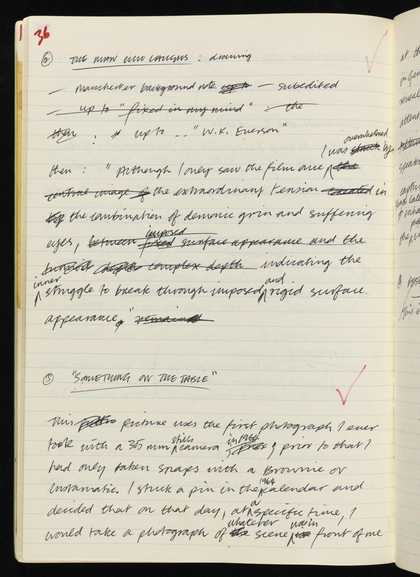 36
② THE MAN WHO LAUGHS : drawing
– Manchester background note – subedited
– up to "fixed in my mind" – the
then : up to ... "W.K. Everson"
overwhelmed
then : "Although I only saw the film once, I was struck by
central image of the extraordinary tension created in
the combination of demonic grin and suffering
imposed
eyes, between fixed surface appearance and the
complex depth indicating the
inner and
struggle to break through imposed rigid surface
appearance."
③ "SOMETHING ON THE TABLE"
This picture uses the first photograph I ever
stills in 1964
took with a 35 mm camera, prior to that I
had only taken snaps with a Brownie or
1964
Instamatic. I stuck a pin in the calendar and
a
decided that on that day, at specific time, I
whatever was in
would take a photograph of the scene front of me